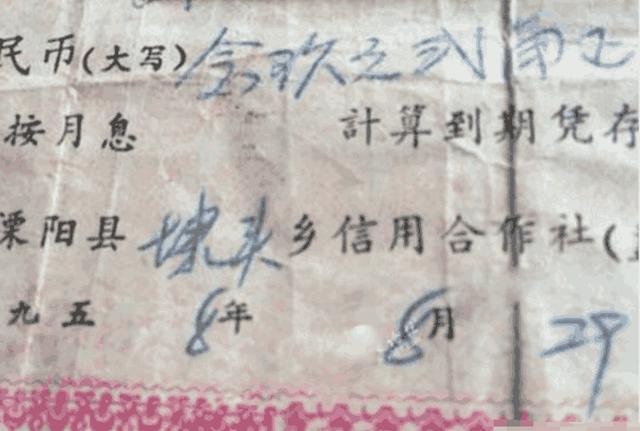 民币(大写)
按月息 計算到期凭存
溧阳县埭头乡信用合作社(
九五8年 8月 29